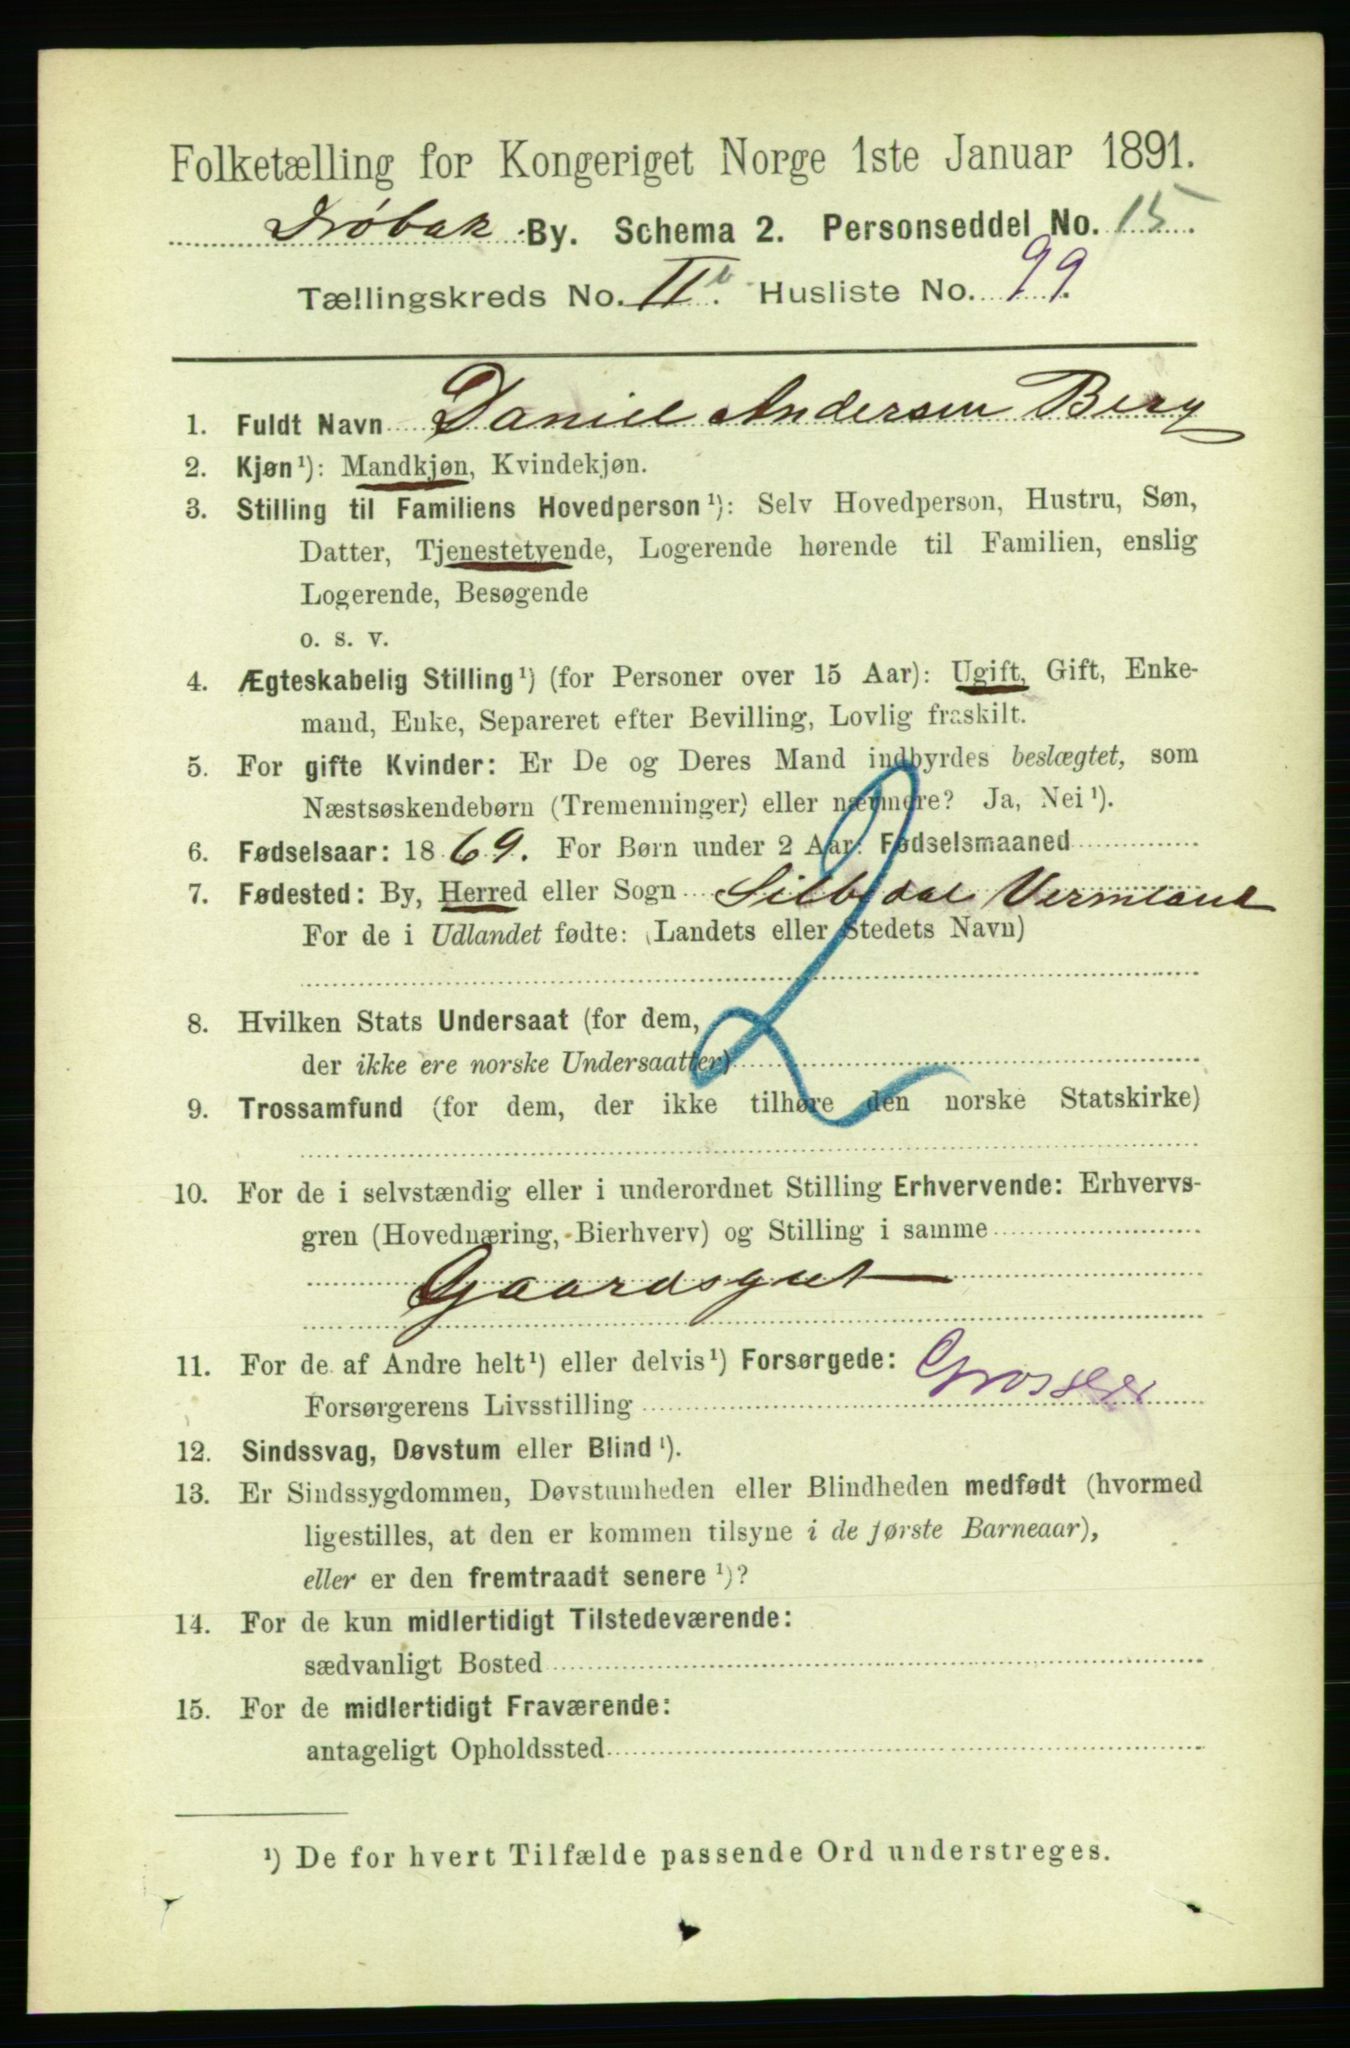 Folketælling for Kongeriget Norge 1ste Januar 1891.
Drøbak By. Schema 2. Personseddel No. 15.
Tællingskreds No. II b. Husliste No. 99.
1. Fuldt Navn Daniel Andersen Berg
2. Kjøn¹): Mandkjøn, Kvindekjøn.
3. Stilling til Familiens Hovedperson¹): Selv Hovedperson, Hustru, Søn,
Datter, Tjenestetyende, Logerende hørende til Familien, enslig
Logerende, Besøgende
o. s. v.
4. Ægteskabelig Stilling¹) (for Personer over 15 Aar): Ugift, Gift, Enke-
mand, Enke, Separeret efter Bevilling, Lovlig fraskilt.
5. For gifte Kvinder: Er De og Deres Mand indbyrdes beslægtet, som
Næstsøskendebørn (Tremenninger) eller nærmere? Ja, Nei¹).
6. Fødselsaar: 1869. For Børn under 2 Aar: Fødselsmaaned
7. Fødested: By, Herred eller Sogn Silbodal Vermland
For de i Udlandet fødte: (Landets eller Stedets Navn)
8. Hvilken Stats Undersaat (for dem,
der ikke ere norske Undersaatter)
9. Trossamfund (for dem, der ikke tilhøre den norske Statskirke)
10. For de i selvstændig eller i underordnet Stilling Erhvervende: Erhvervs-
gren (Hovednæring, Bierhverv) og Stilling i samme
Gaardsgut
11. For de af Andre helt¹) eller delvis¹) Forsørgede:
Forsørgerens Livsstilling Grosserer
12. Sindssvag, Døvstum eller Blind¹).
13. Er Sindssygdommen, Døvstumheden eller Blindheden medfødt (hvormed
ligestilles, at den er kommen tilsyne i de første Barneaar),
eller er den fremtraadt senere¹)?
14. For de kun midlertidigt Tilstedeværende:
sædvanligt Bosted
15. For de midlertidigt Fraværende:
antageligt Opholdssted
¹) De for hvert Tilfælde passende Ord understreges.